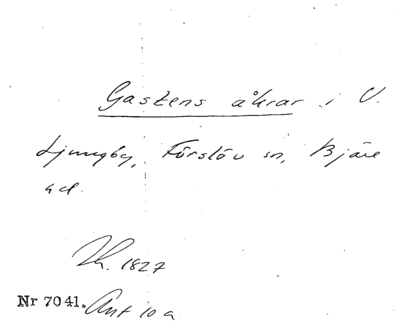 Gastens åkrar i V.
Ljungby, Förslöv sn, Bjäre
hd.
Th. 1827
Nr 7041. Ant 10 a